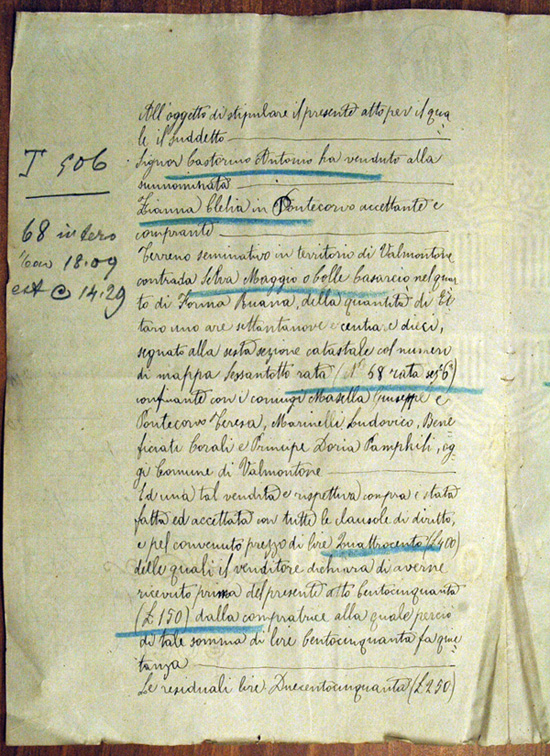 All'oggetto di stipulare il presente atto per il qua
le il suddetto
Signor Castorino Antonio ha venduto alla
sunnominata
Zianna Clelia in Pontecorvo accettante e
comprante
Terreno seminativo in territorio di Valmontone
contrada Selva Maggio o Colle Casarcio nel quar
to di Forma Buana, della quantità di Et
taro uno are settantanove e centiare dieci,
segnato alla sesta sezione catastale col numeri
di mappa Sessantotto rata (N° 68 rata sez 6ª)
confinante con i coniugi Masella Giuseppe e
Pontecorvo Teresa, Marinelli Ludovico, Bene
ficiati Corali e Principe Doria Pamphili, og
gi Comune di Valmontone
Ed una tal vendita e rispettiva compra è stata
fatta ed accettata con tutte le clausole di diritto,
e pel convenuto prezzo di lire Quattrocento (£400)
delle quali il venditore dichiara di averne
ricevuto prima del presente atto Centocinquanta
(£150) dalla compratrice alla quale perciò
di tale somma di lire Centocinquanta fa quie
tanza
Le residuali lire Duecentocinquanta (£250)
I 506
68 intero
18.09
est 14.29